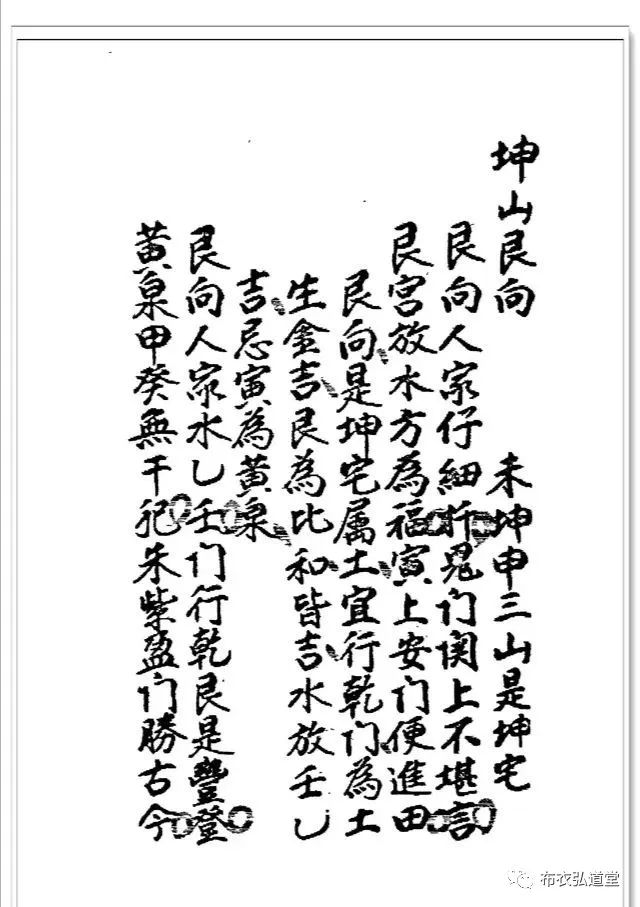 坤山艮向　未坤申三山是坤宅
艮向人家仔細拆鬼门関上不堪言
艮宮放水方為福寅上安门便進田
艮向是坤宅属土宜行乾门為土
生金吉艮為比和皆吉水放壬乚
吉忌寅為黃泉
艮向人家水乚壬门行乾艮是豐登
黃泉甲癸無干犯朱紫盈门勝古今
布衣弘道堂